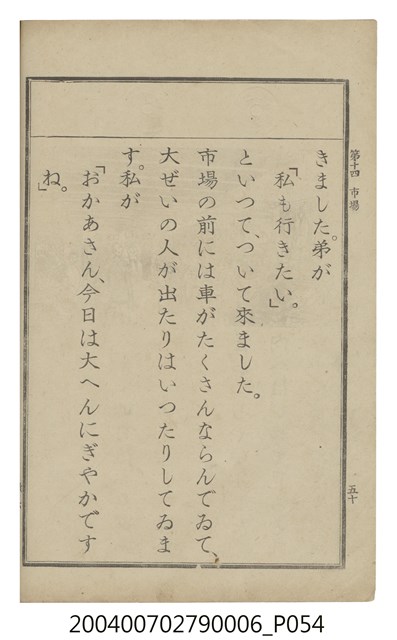 第十四 市場
五十
きました。弟が
「私も行きたい。」
といつて、ついて來ました。
市場の前には車がたくさんならんでゐて、
大ぜいの人が出たりはいつたりしてゐま
す。私が
「おかあさん、今日は大へんにぎやかです
ね。」
200400702790006_P054